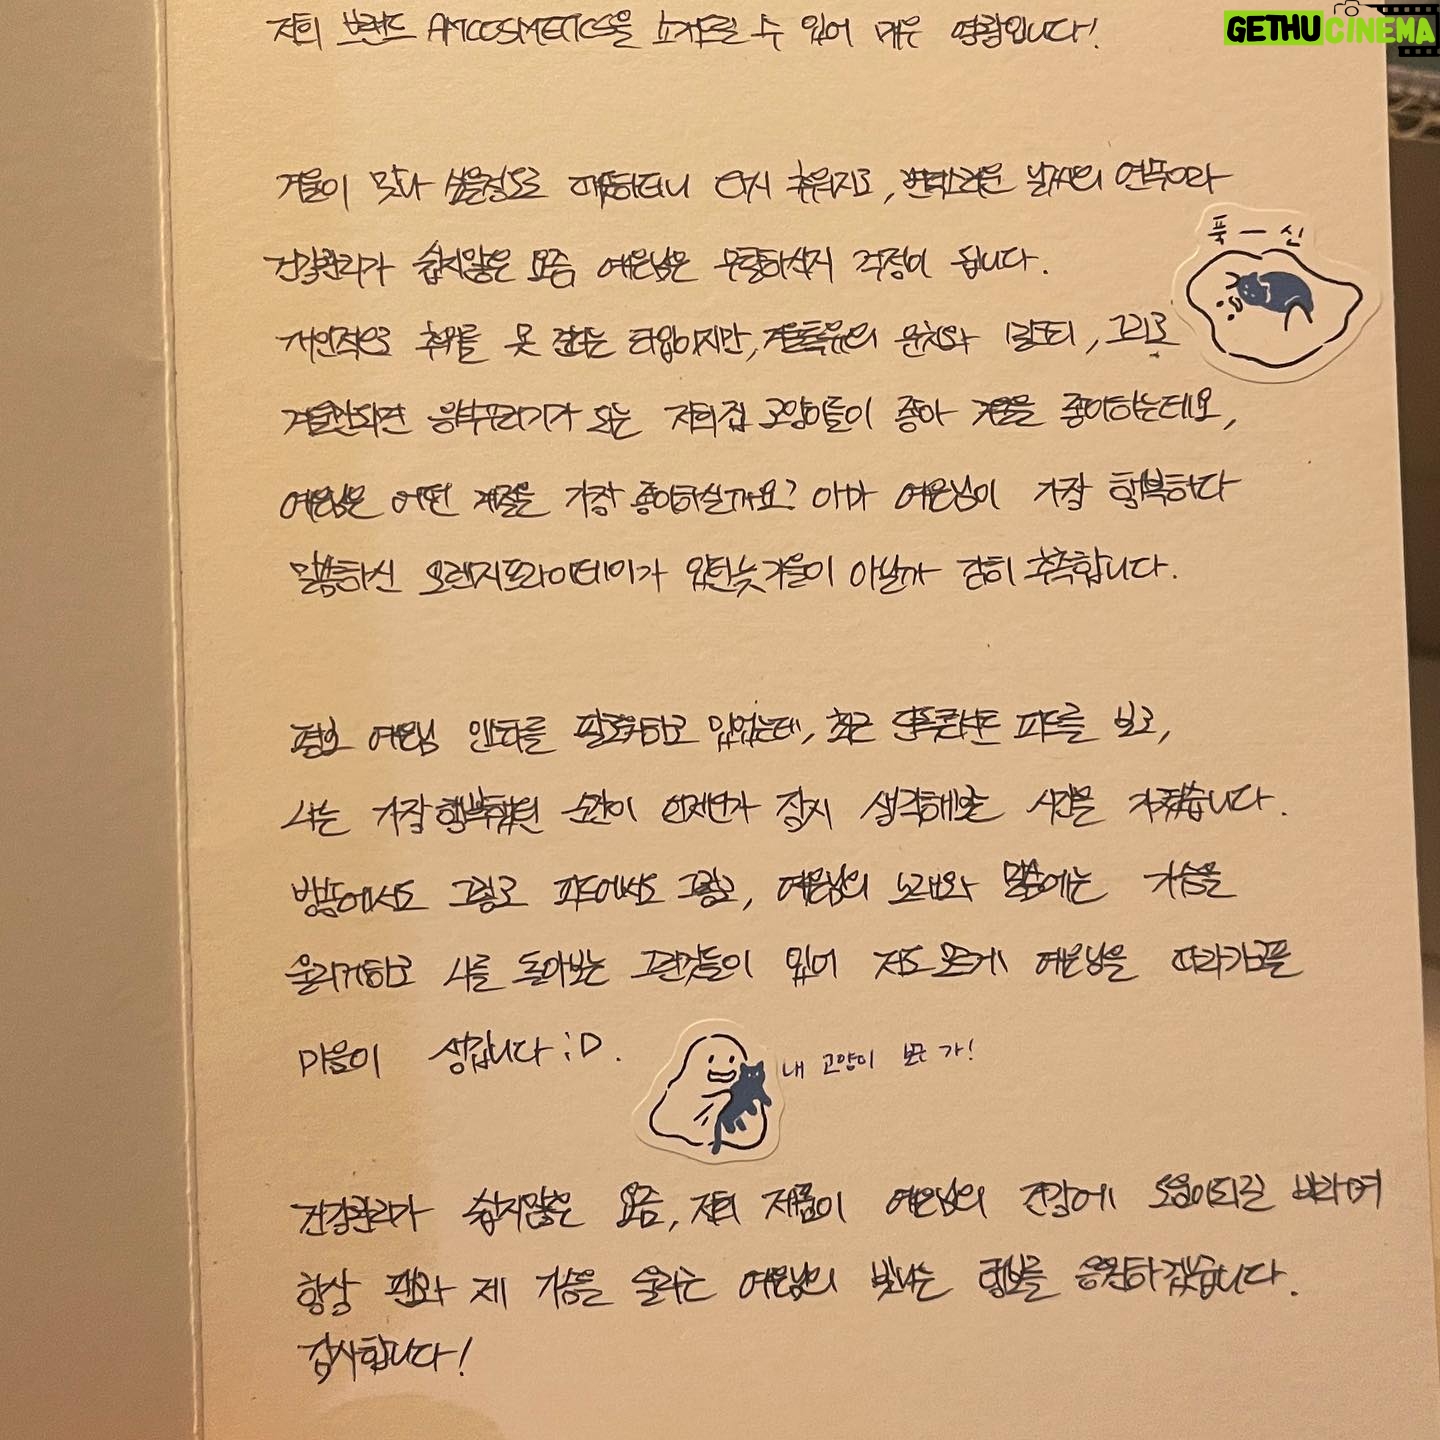 저희 브랜드 AMCOSMETICS을 소개드릴 수 있어 매우 영광입니다!
겨울이 맞나 싶을정도로 따뜻하더니 다시 추워지고, 변덕스러운 날씨의 연속이라
건강관리가 쉽지않은 요즘 예은님은 무탈하신지 걱정이 됩니다.
푹 - 신
개인적으로 추위를 못 견디는 타입이지만, 겨울특유의 운치와 1월도 , 그리고
겨울만되면 응부꾸리기가 되는 저희집 고양이들이 좋아 겨울을 좋아하는데요,
예은님은 어떤 계절을 가장 좋아하실까요? 아마 예은님이 가장 행복하다
말씀하신 오렌지프라이데이가 있던 늦겨울이 아닐까 감히 추측합니다.
평소 예은님 인스타를 팔로우하고 있었는데, 최근 단독콘서트 피드를 보고,
나는 가장 행복했던 순간이 언제인가 잠시 생각해보는 시간을 가졌습니다.
방송에서도 그렇고 피드에서도 그렇고, 예은님의 노래와 말씀에는 가슴을
울리게하고 나를 돌아보는 그런것들이 있어 저도 모르게 예은님을 따라가고픈
마음이 생깁니다 :D.
내 고양이 보고 가!
건강관리가 쉽지않은 요즘, 저희 제품이 예은님의 건강에 도움이되길 바라며
항상 팬과 제 가슴을 울리는 예은님의 빛나는 행보를 응원하겠습니다.
감사합니다!
GETHUCINEMA